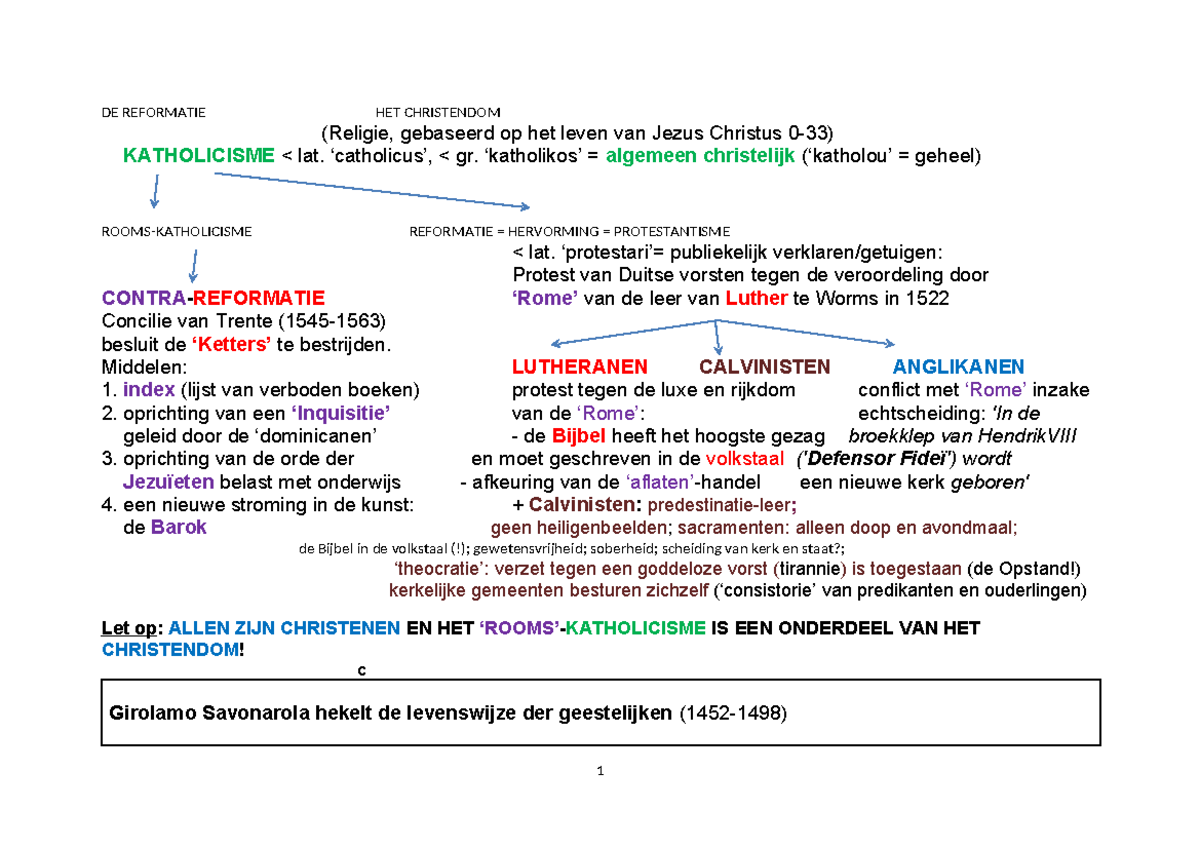 DE REFORMATIE HET CHRISTENDOM
(Religie, gebaseerd op het leven van Jezus Christus 0-33)
KATHOLICISME < lat. ‘catholicus’, < gr. ‘katholikos’ = algemeen christelijk (‘katholou’ = geheel)
ROOMS-KATHOLICISME REFORMATIE = HERVORMING = PROTESTANTISME
< lat. ‘protestari’= publiekelijk verklaren/getuigen:
Protest van Duitse vorsten tegen de veroordeling door
CONTRA-REFORMATIE ‘Rome’ van de leer van Luther te Worms in 1522
Concilie van Trente (1545-1563)
besluit de ‘Ketters’ te bestrijden.
Middelen: LUTHERANEN CALVINISTEN ANGLIKANEN
1. index (lijst van verboden boeken) protest tegen de luxe en rijkdom conflict met ‘Rome’ inzake
2. oprichting van een ‘Inquisitie’ van de ‘Rome’: echtscheiding: 'In de
geleid door de ‘dominicanen’ - de Bijbel heeft het hoogste gezag broekklep van HendrikVIII
3. oprichting van de orde der en moet geschreven in de volkstaal ('Defensor Fideï') wordt
Jezuïeten belast met onderwijs - afkeuring van de ‘aflaten’-handel een nieuwe kerk geboren'
4. een nieuwe stroming in de kunst: + Calvinisten: predestinatie-leer;
de Barok geen heiligenbeelden; sacramenten: alleen doop en avondmaal;
de Bijbel in de volkstaal (!); gewetensvrijheid; soberheid; scheiding van kerk en staat?;
‘theocratie’: verzet tegen een goddeloze vorst (tirannie) is toegestaan (de Opstand!)
kerkelijke gemeenten besturen zichzelf (‘consistorie’ van predikanten en ouderlingen)
Let op: ALLEN ZIJN CHRISTENEN EN HET ‘ROOMS’-KATHOLICISME IS EEN ONDERDEEL VAN HET
CHRISTENDOM!
c
Girolamo Savonarola hekelt de levenswijze der geestelijken (1452-1498)
1